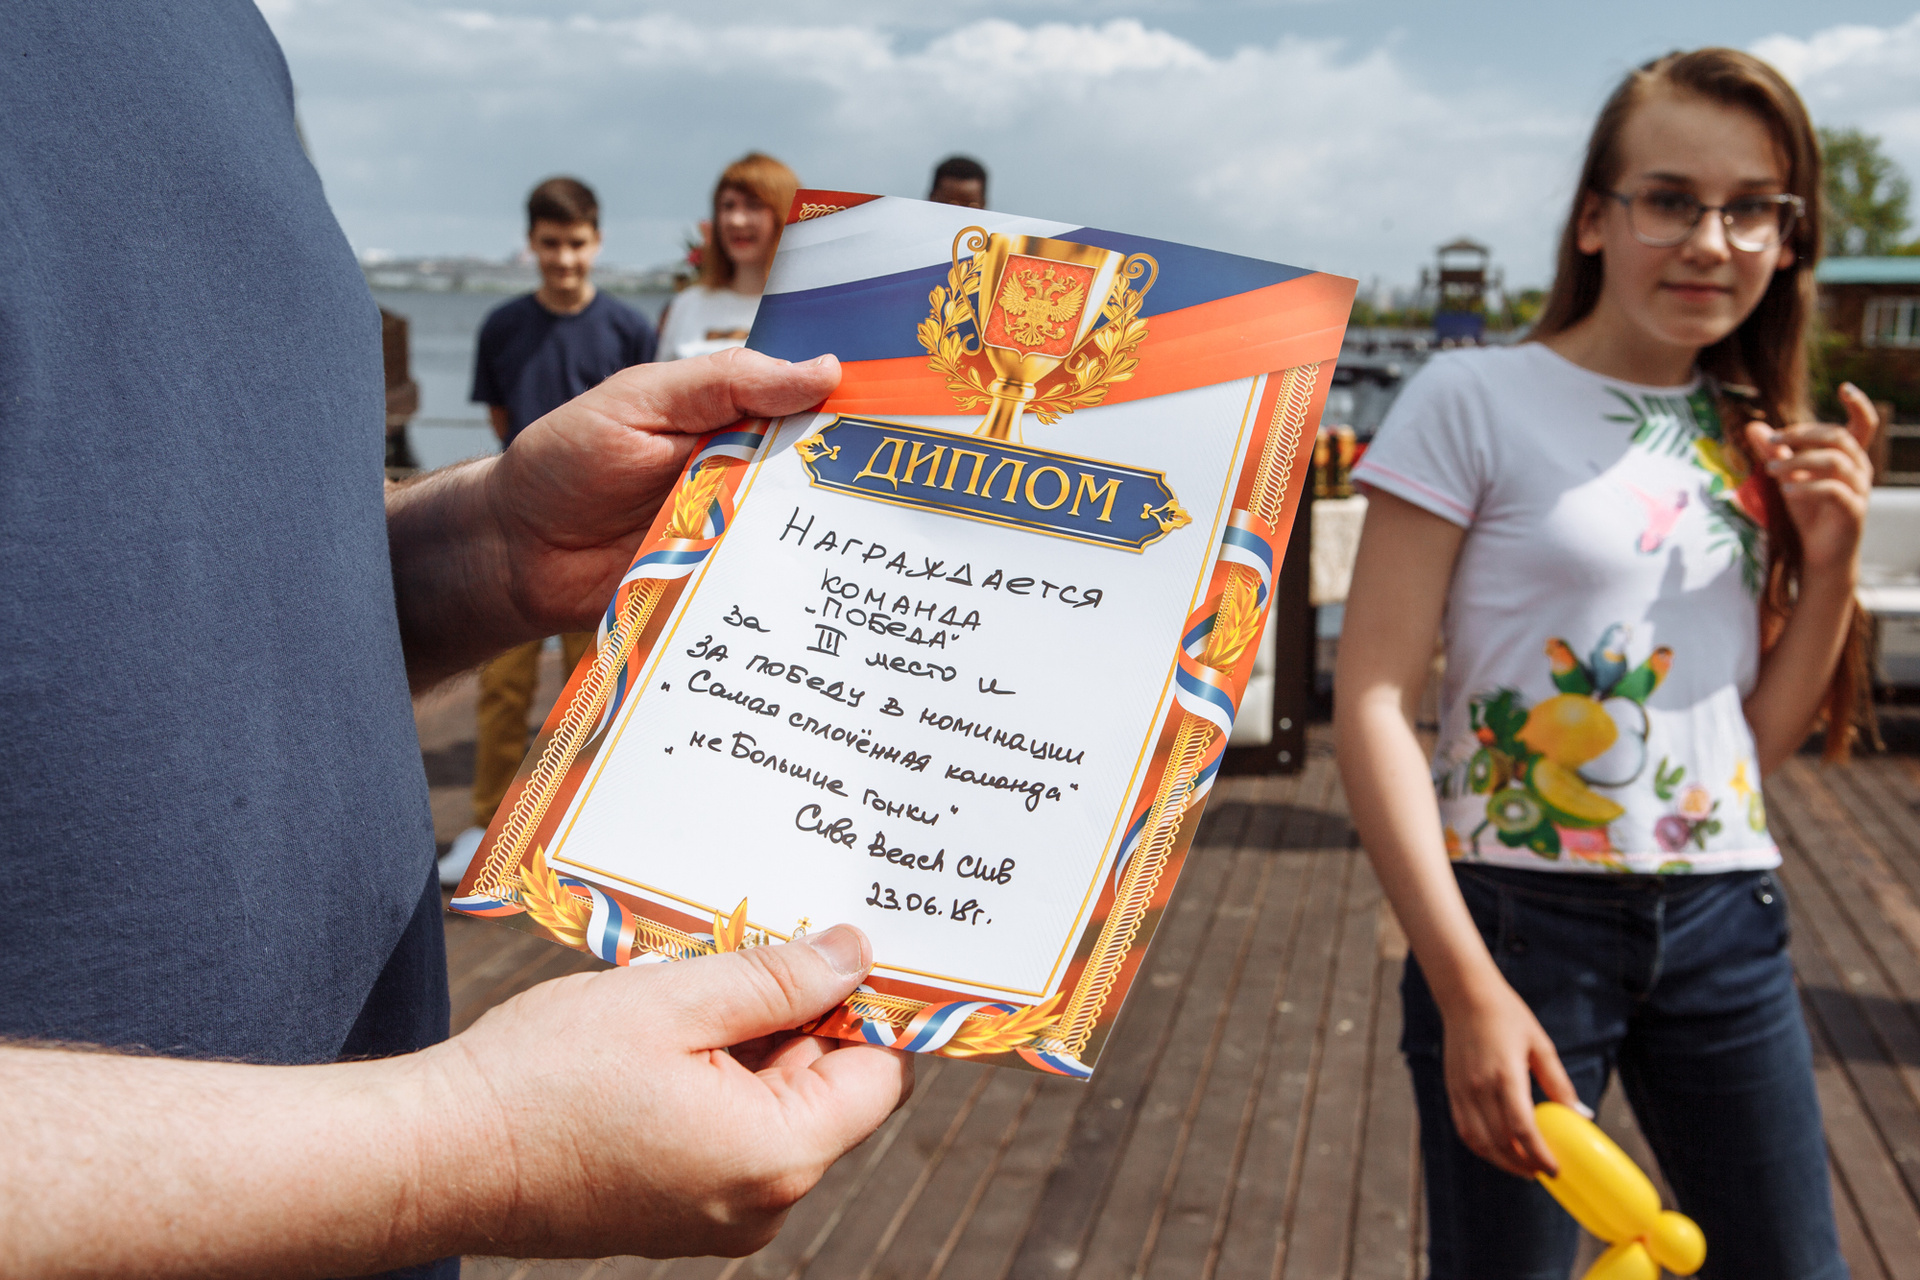 ДИПЛОМ
НАГРАЖДАЕТСЯ
КОМАНДА
"ПОБЕДА"
За III место и
ЗА победу в номинации
"Самая сплочённая команда"
"не Большие гонки"
Сива Beach Club
23.06.18г.